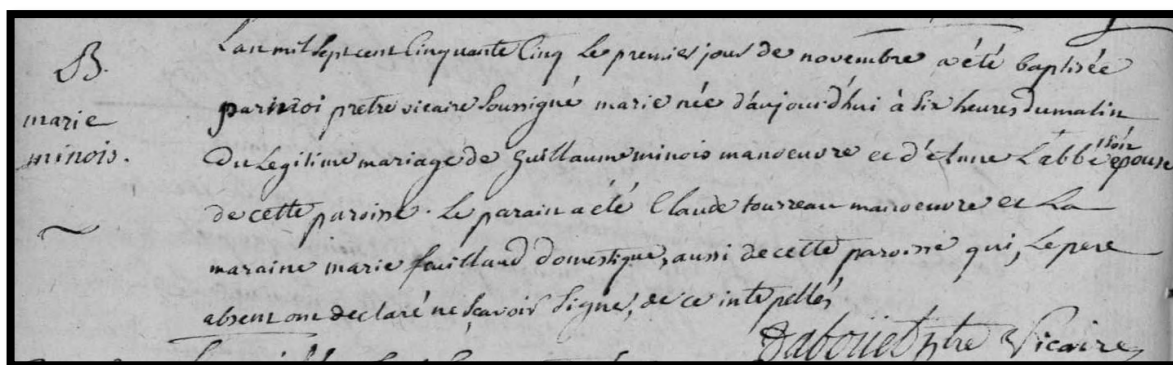 B.
marie
minois.
L'an mil sept cent Cinquante Cinq Le premier jour de novembre a été baptisée
par moi pretre vicaire Soussigné marie née d'aujourd'hui à Six heures du matin
Du Legitime mariage de Guillaume minois manoeuvre et d'Anne L'abbé son épouse
de cette paroisse. Le parain a été Claude tourreau manoeuvre et La
maraine marie feuillaud domestique, aussi de cette paroisse qui, Le pere
absent ont declaré ne sçavoir Signer, de ce interpellés
Dabouet ptre Vicaire